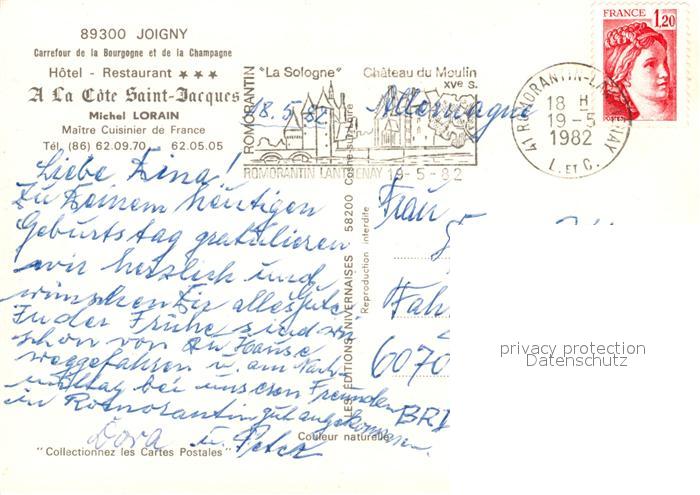 89300 JOIGNY
Carrefour de la Bourgogne et de la Champagne
Hôtel - Restaurant ★ ★ ★
A La Côte Saint-Jacques
Michel LORAIN
Maître Cuisinier de France
Tél. (86) 62.09.70 62.05.05
"La Sologne"
Château du Moulin
XVe s.
ROMORANTIN
ROMORANTIN LANTHENAY 19-5-82
FRANCE
1,20
41 ROMORANTIN-LANTHENAY
18 H
19-5
1982
L. ET C.
18.5.82
Allemagne
Liebe Zina!
Zu Deinem heutigen
Geburtstag gratulieren
wir herzlich und
wünschen Dir alles Gute
In der Frühe sind wir
schon von zu Hause
weggefahren u. am Nach-
mittag bei unseren Freunden
in Romorantin gut angekommen.
Dora u. Peter
Frau
6070
BRD
LES EDITIONS NIVERNAISES 58200 Cosne-sur-Loire
Reproduction interdite
Couleur naturelle
"Collectionnez les Cartes Postales"
privacy protection
Datenschutz